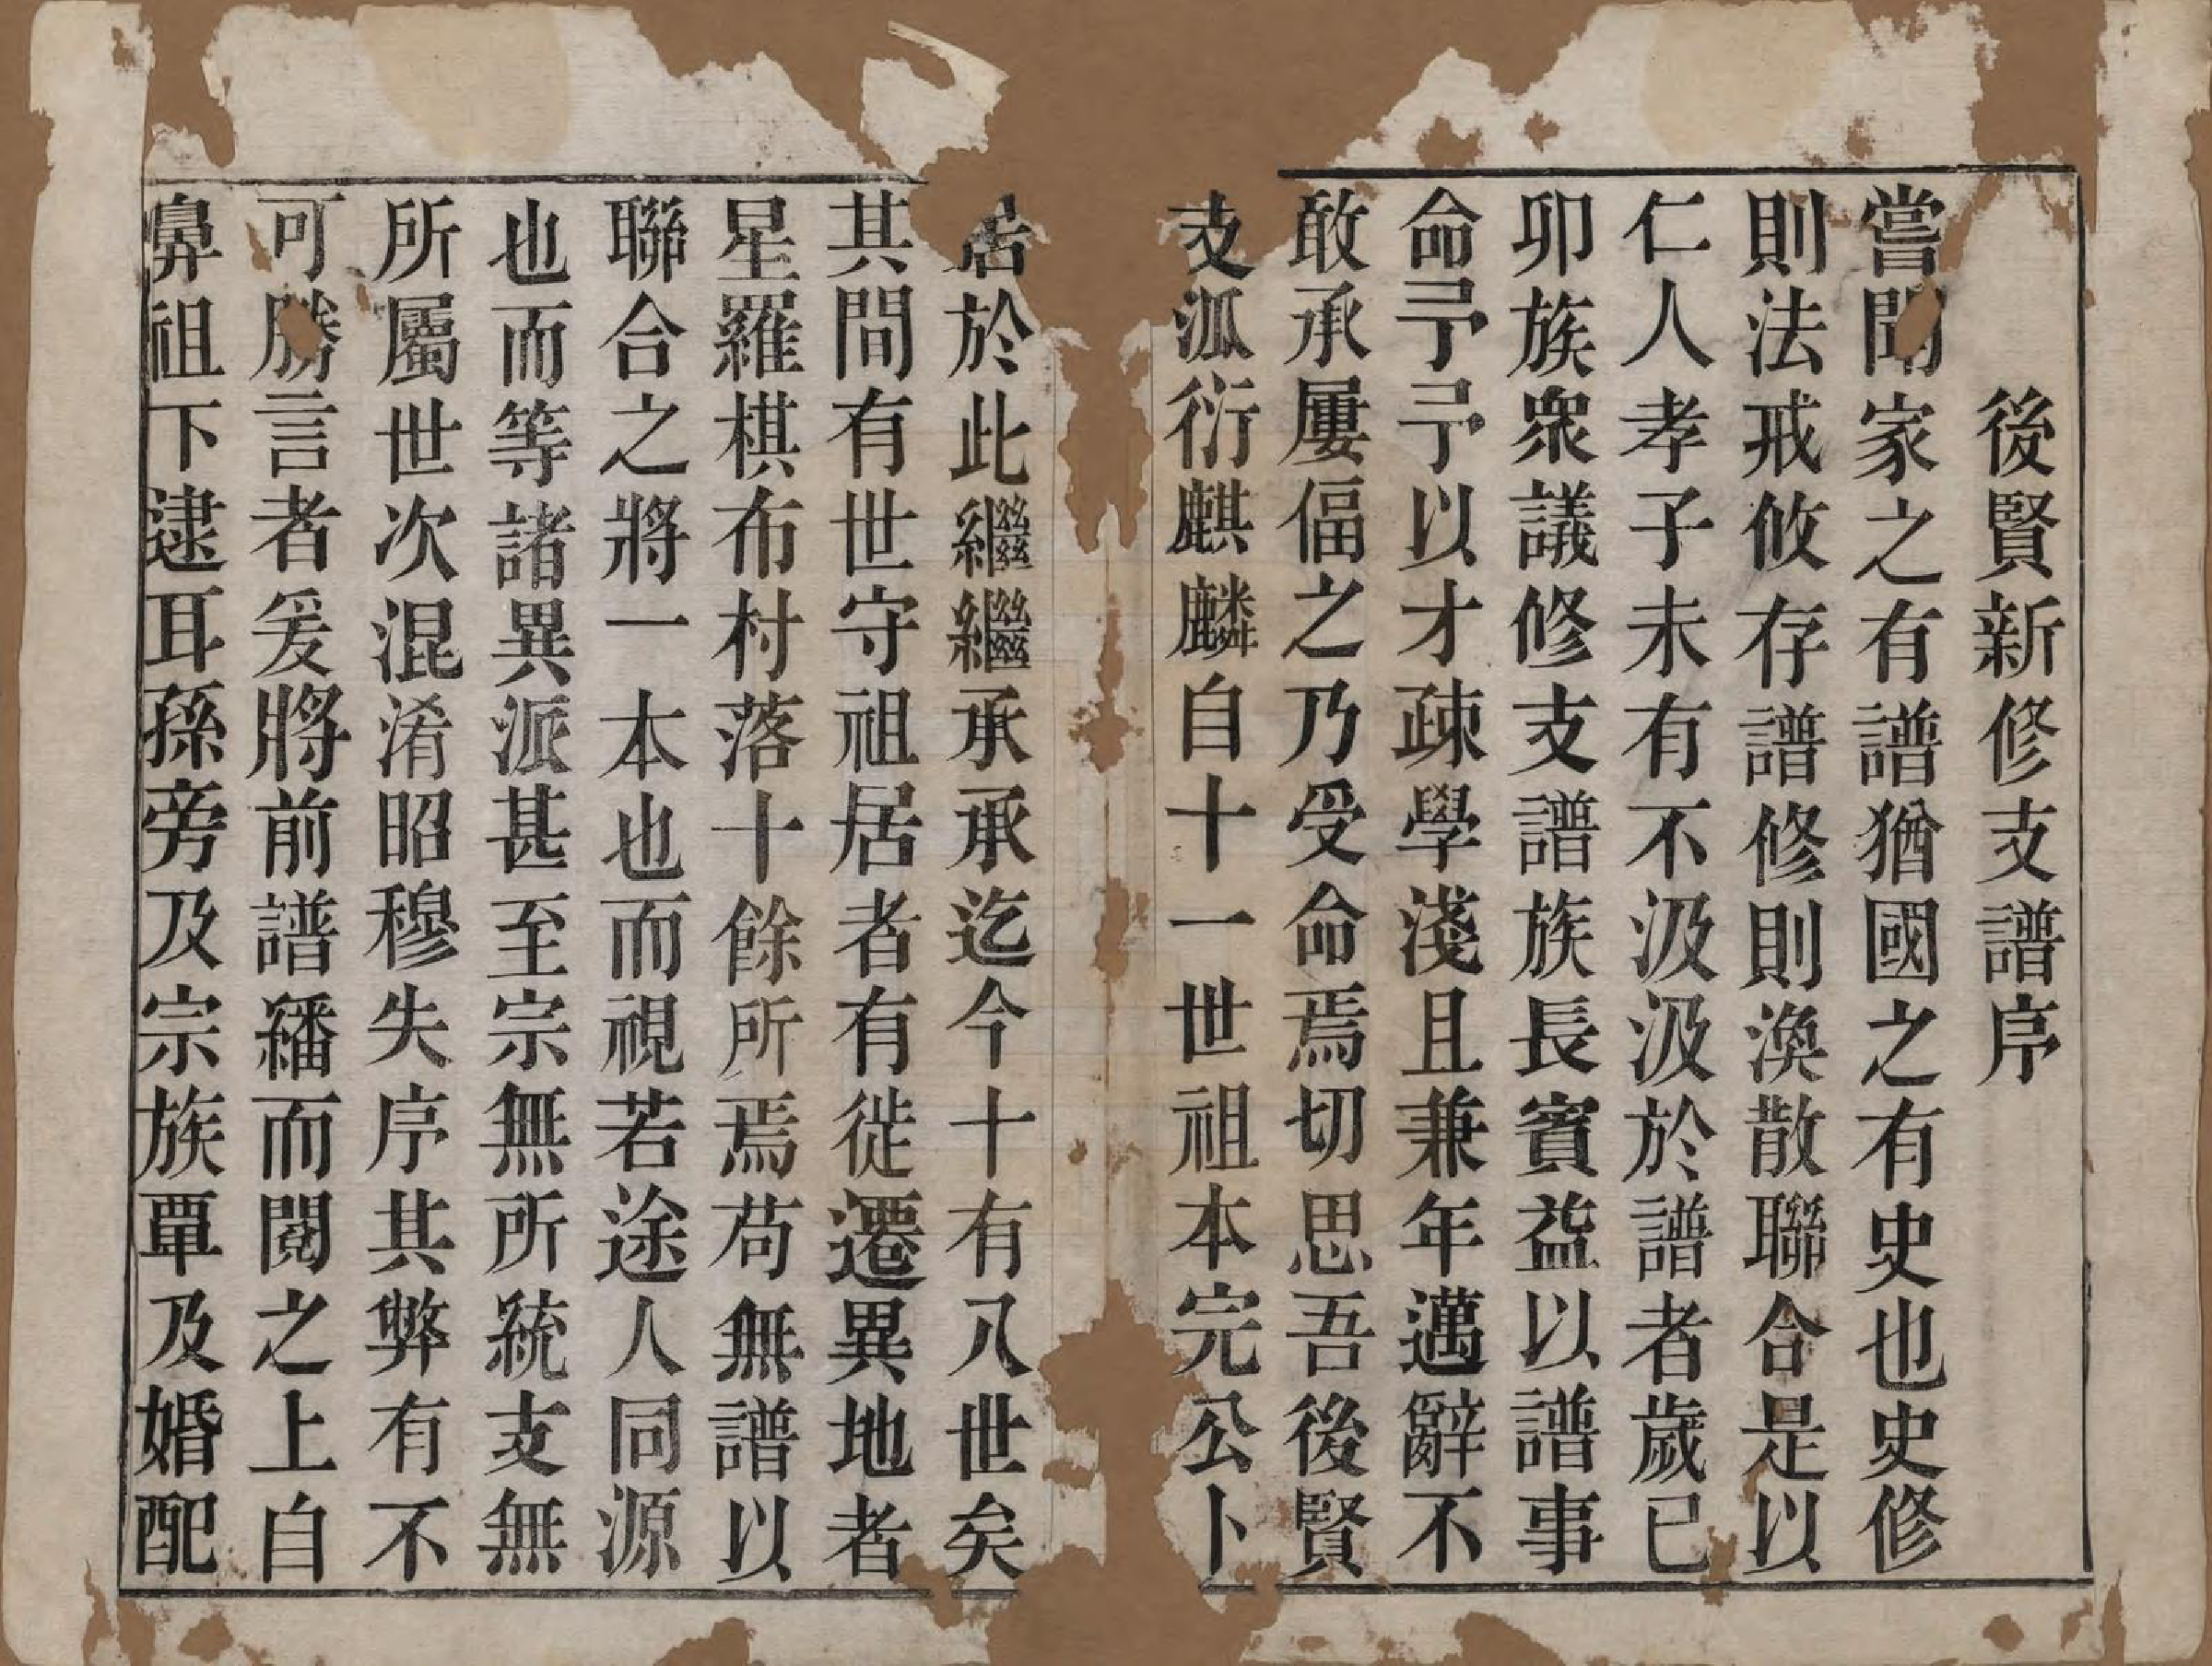 後賢新修支譜序
嘗聞家之有譜猶國之有史也史修
則法戒攸存譜修則渙散聯合是以
仁人孝子未有不汲汲於譜者歲已
卯族眾議修支譜族長賓益以譜事
命予予以才疎學淺且兼年邁辭不
敢承屢偪之乃受命焉切思吾後賢
支泒衍麒麟自十一世祖本完公卜
居於此繼繼承承迄今十有八世矣
其間有世守祖居者有徙遷異地者
星羅棋布村落十餘所焉苟無譜以
聯合之將一本也而視若途人同源
也而等諸異派甚至宗無所統支無
所屬世次混淆昭穆失序其弊有不
可勝言者爰將前譜繙而閱之上自
鼻祖下逮耳孫旁及宗族覃及婚配